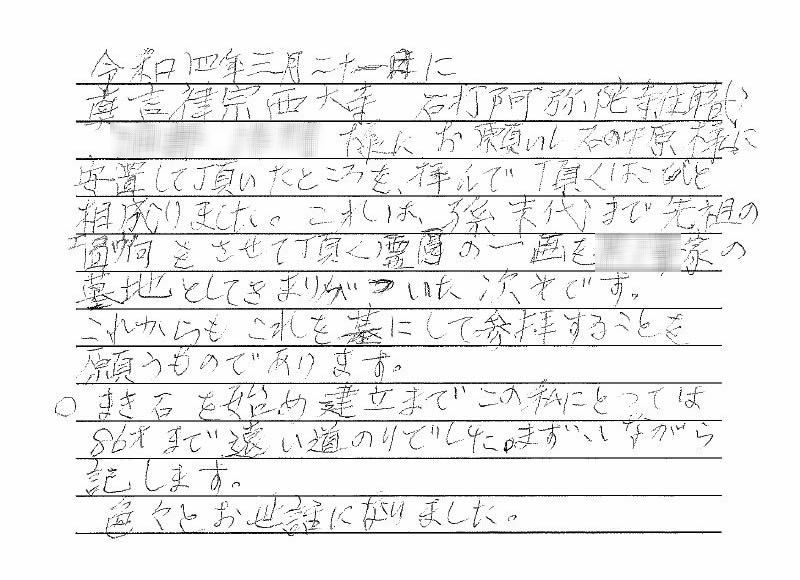 令和四年三月二十一日に
真言律宗西大寺 石打阿弥陀寺住職
様に お願いし 石の中原様に
安置して頂いたところを、拝んで頂くはこびと
相成りました。これは、孫末代まで先祖の
回向をさせて頂く霊園の一画を 家の
墓地としてきまりがついた次第です。
これからもこれを墓にして参拝することを
願うものであります。
○ まき石を始め建立までこの私にとっては
86才まで遠い道のりでした。まずいながら
記します。
色々とお世話になりました。